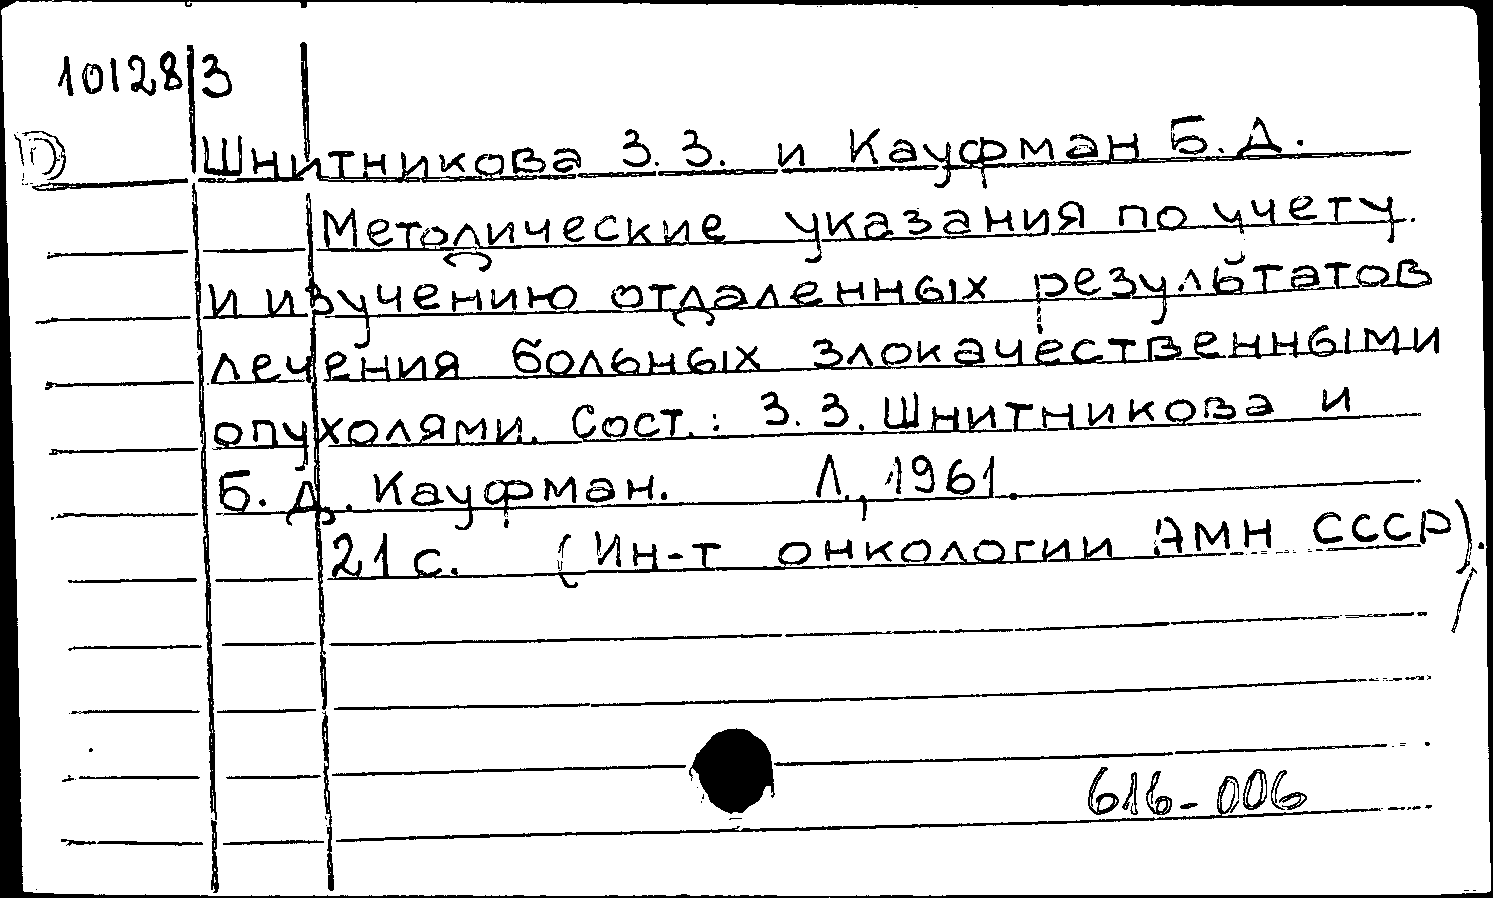 101283
D
Шнитникова З.З. и Кауфман Б.Д.
Методические указания по учету
и изучению отдаленных результатов
лечения больных злокачественными
опухолями. Сост.: З.З. Шнитникова и
Б.Д. Кауфман. Л., 1961.
21 с. (Ин-т онкологии АМН СССР).
616-006